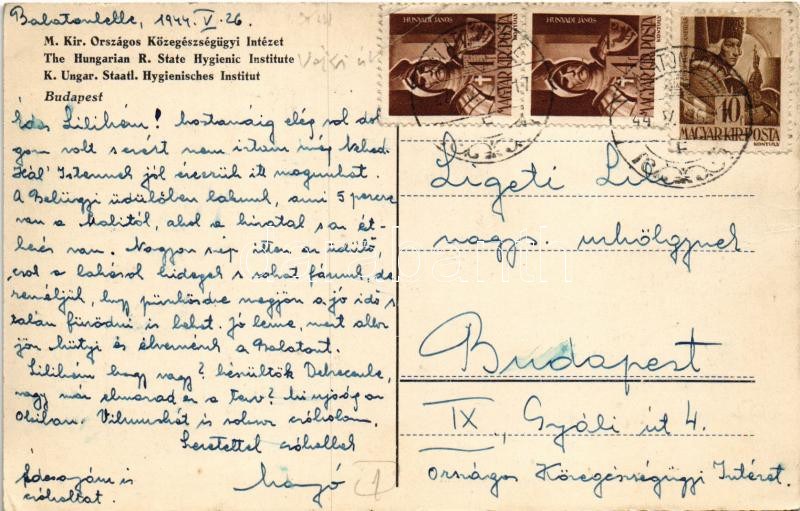 Balatonlelle, 1944. V. 26.
M. Kir. Országos Közegészségügyi Intézet
The Hungarian R. State Hygienic Institute
K. Ungar. Staatl. Hygienisches Institut
Budapest
Édes Lilikém! hostanáig elég sok dol
gom volt s ezért nem írtam még Neked.
Hál' Istennek jól érezzük itt magunkat.
A Belügyi üdülőben lakunk, ami 5 percre
van a Molitól, ahol a hivatal s az ét-
kezés van. Nagyon szép itten az üdülő,
csak a lakások hidegek s sokat fázunk, de
reméljük, hogy pünkösdre megjön a jó idő s
talán fürödni is lehet. Jó lenne, mert akkor
jön hütyi és élveznénk a Balatont.
Lilikém hogy vagy? készültök Debrecenbe,
vagy már elmarad ez a terv? Mi újság az
Okiban. Vilmuskát is sokszor csókolom.
Szeretettel csókollak
Manyó
Édesanyám is
csókoltat.
HUNYADI JÁNOS
4
MAGYAR KIR. POSTA
HUNYADI JÁNOS
4
MAGYAR KIR. POSTA
10
MAGYAR KIR. POSTA
Ligeti Lili
nagys. urhölgynek
Budapest
IX., Gyáli út 4.
Országos Közegészségügyi Intézet.